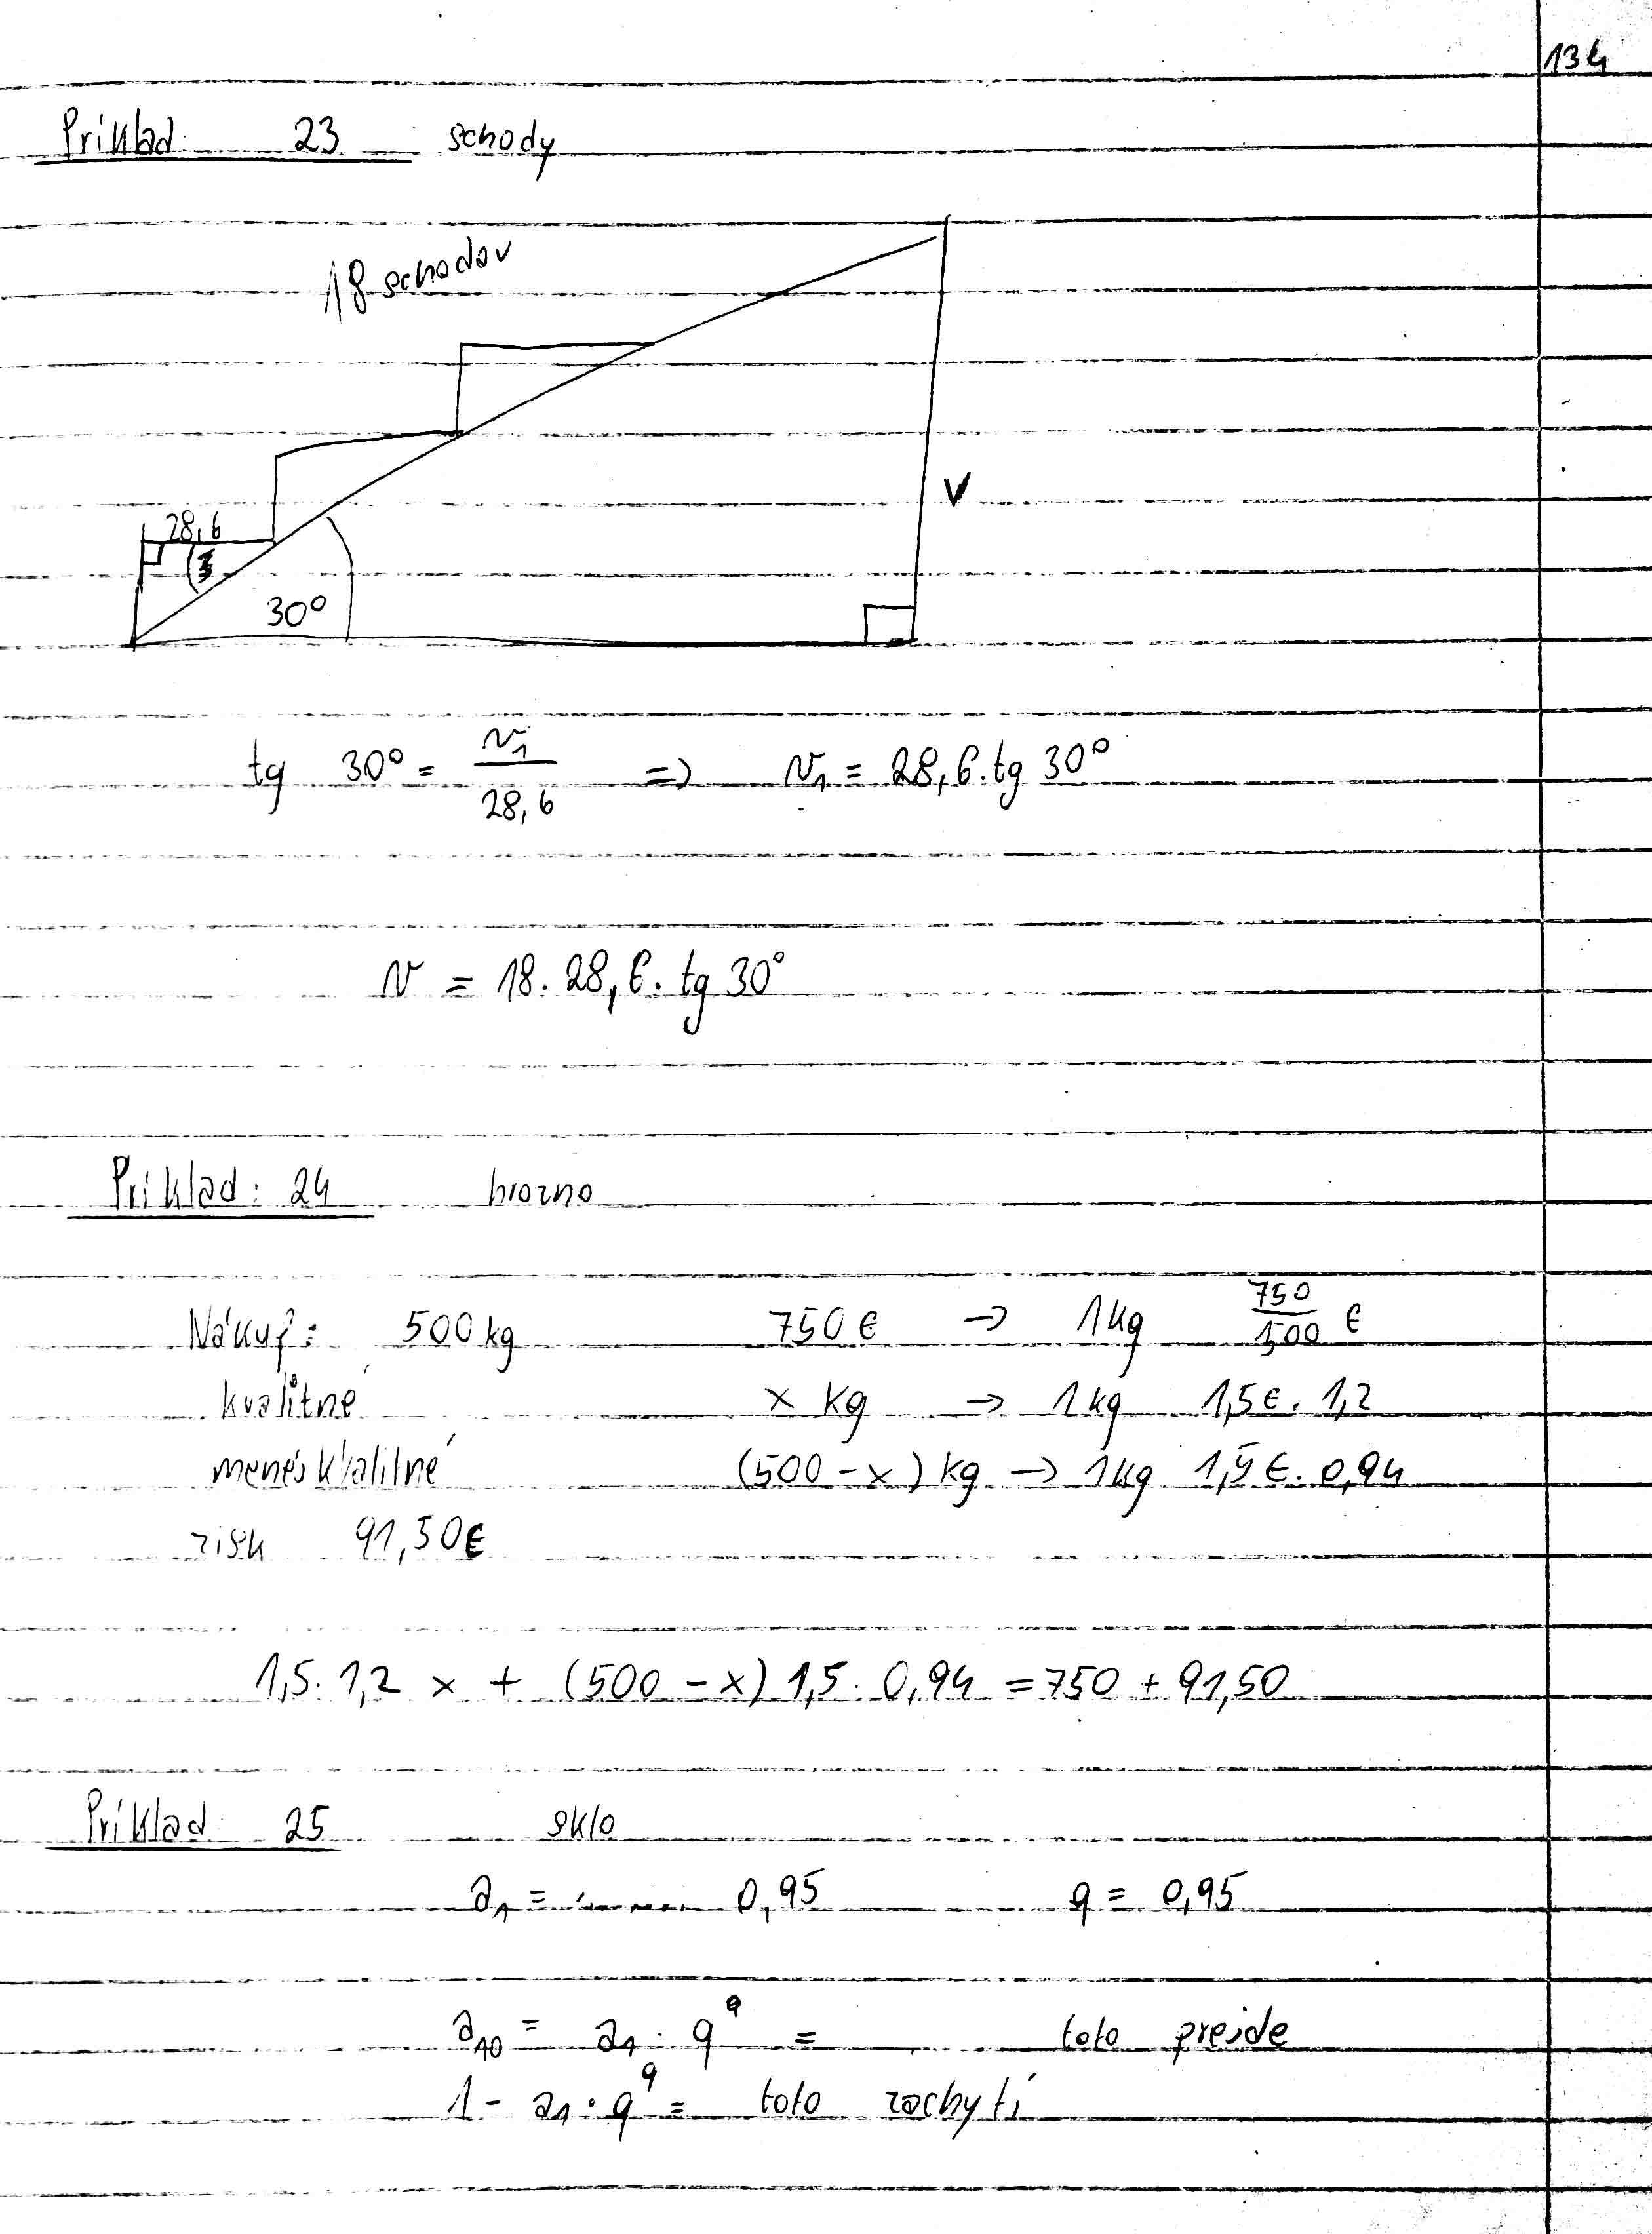 134
Príklad 23 schody
18 schodov
28,6
30°
V
tg 30° = v₁/28,6 => v₁ = 28,6 . tg 30°
v = 18 . 28,6 . tg 30°
Príklad: 24 hrozno
Nákup: 500 kg 750 € → 1 kg 750/500 €
kvalitné x kg → 1 kg 1,5 € . 1,2
menejkvalitné (500 - x) kg → 1 kg 1,5 € . 0,94
zisk 91,50 €
1,5 . 1,2 x + (500 - x) 1,5 . 0,94 = 750 + 91,50
Príklad 25 sklo
a₁ = ....... 0,95 q = 0,95
a₁₀ = a₁ . q⁹ = toto prejde
1 - a₁ . q⁹ = toto zachytí